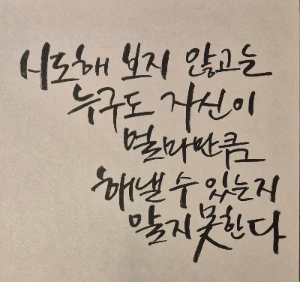 시도해 보지 않고는
누구도 자신이
얼마만큼
해낼 수 있는지
알지 못한다